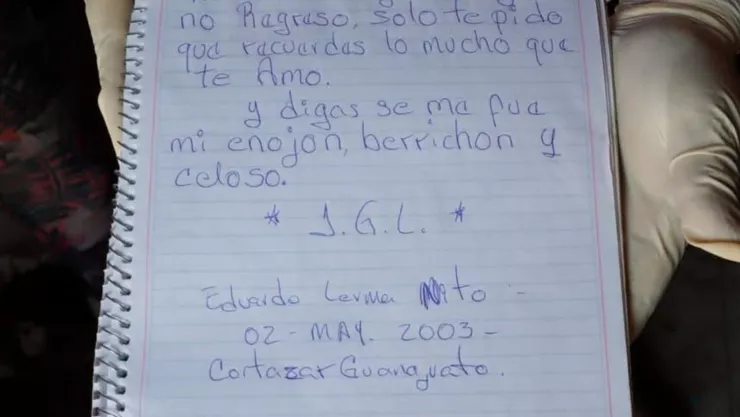 no Regraso, solo te pido
que racuardas lo mucho que
te Amo.
y digas se ma fua
mi enojon, berrichon y
celoso.
* J.G.L. *
Eduardo Lerma Nito -
02 - MAY. 2003 -
Cortazar Guanajuato.